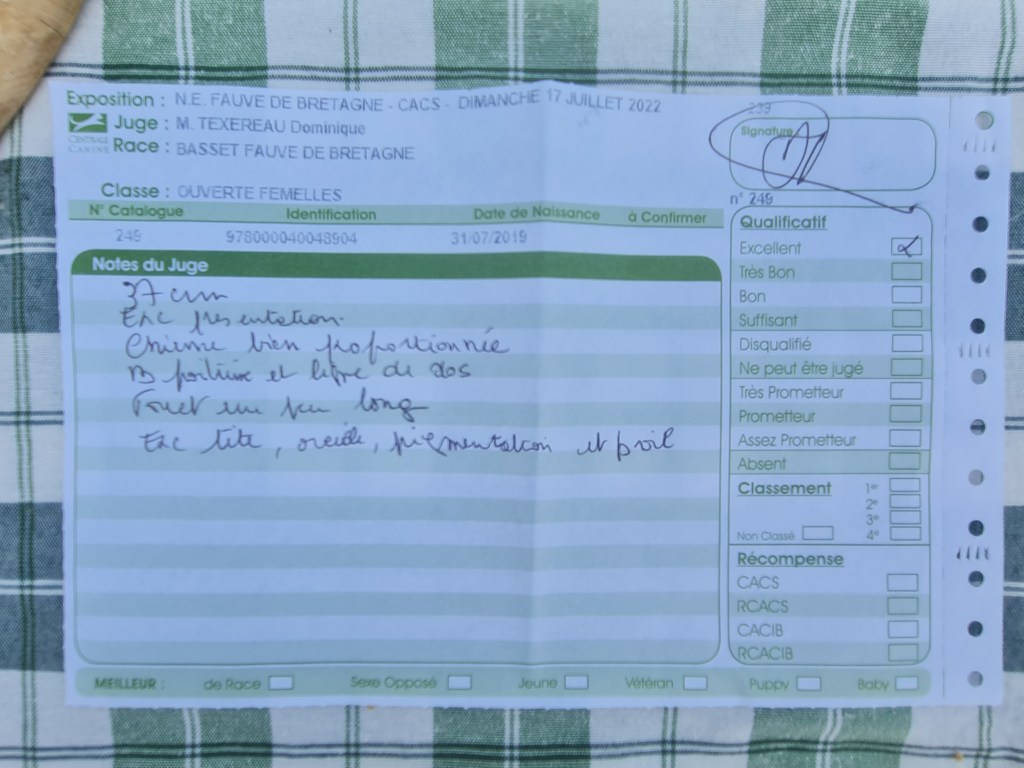 Exposition : N.E. FAUVE DE BRETAGNE - CACS - DIMANCHE 17 JUILLET 2022
Juge : M. TEXEREAU Dominique
CENTRALE CANINE
Race : BASSET FAUVE DE BRETAGNE
Classe : OUVERTE FEMELLES
239
Signature
n° 249
N° Catalogue Identification Date de Naissance à Confirmer
249 978000040048904 31/07/2019
Notes du Juge
37 cm
Exc présentation.
Chienne bien proportionnée
B poitrine et ligne de dos
Fouet un peu long
Exc tête, oreille, pigmentation et poil
Qualificatif
Excellent
Très Bon
Bon
Suffisant
Disqualifié
Ne peut être jugé
Très Prometteur
Prometteur
Assez Prometteur
Absent
Classement 1er
2e
3e
Non Classé 4e
Récompense
CACS
RCACS
CACIB
RCACIB
MEILLEUR : de Race Sexe Opposé Jeune Vétéran Puppy Baby